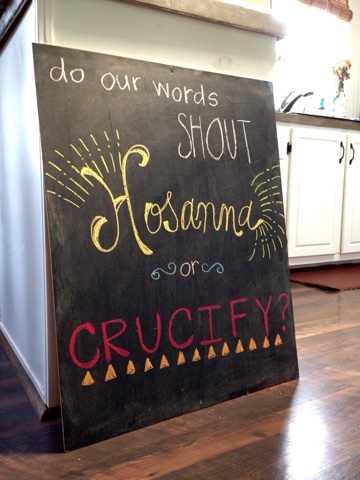 do our words
SHOUT
Hosanna
or
CRUCIFY?